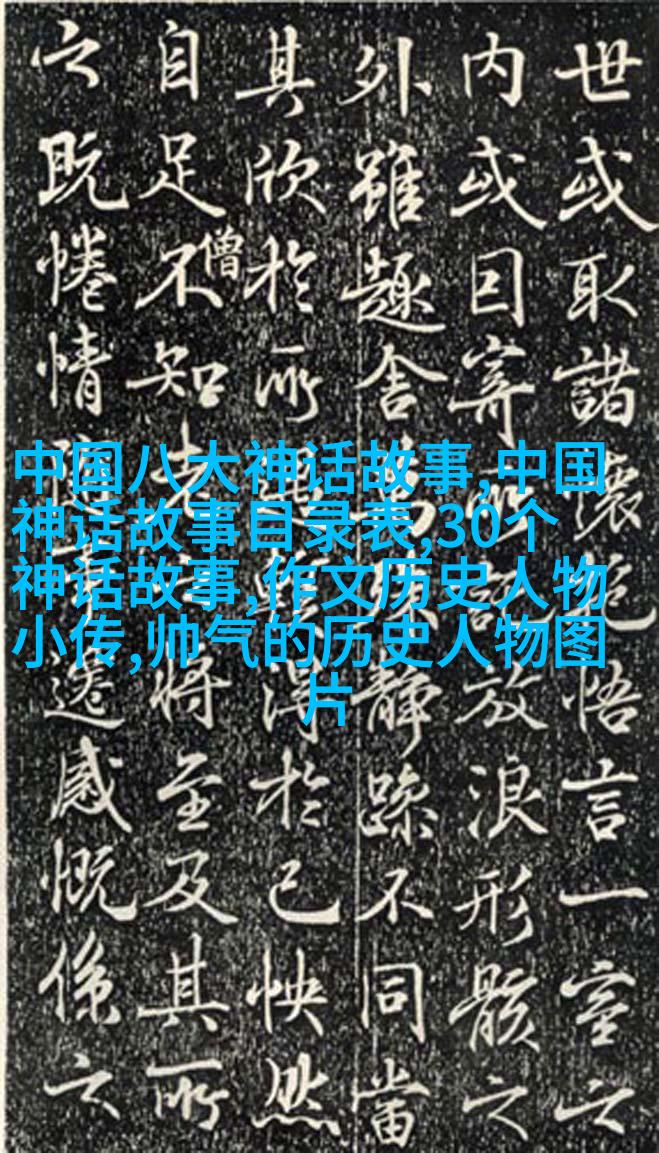 中国八大神话故事,中国
神话故事目录表,30个
神话故事,作文历史人物
小传,帅气的历史人物图
片
世或取諸懷抱悟言一室之
内或因寄所託放浪形骸之
外雖趣舍萬殊靜躁不同當
其欣於所遇暫得於己怏然
自足不知老之將至及其所
僧
之既惓情隨事遷感慨係之